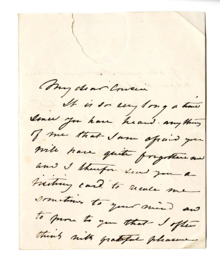 My dear Cousin
It is so very long a time
since you have heard anything
of me that I am afraid you
will have quite forgotten me
and I therefore send you a
visiting card to recall me
sometimes to your mind and
to prove to you that I often
think with grateful pleasure